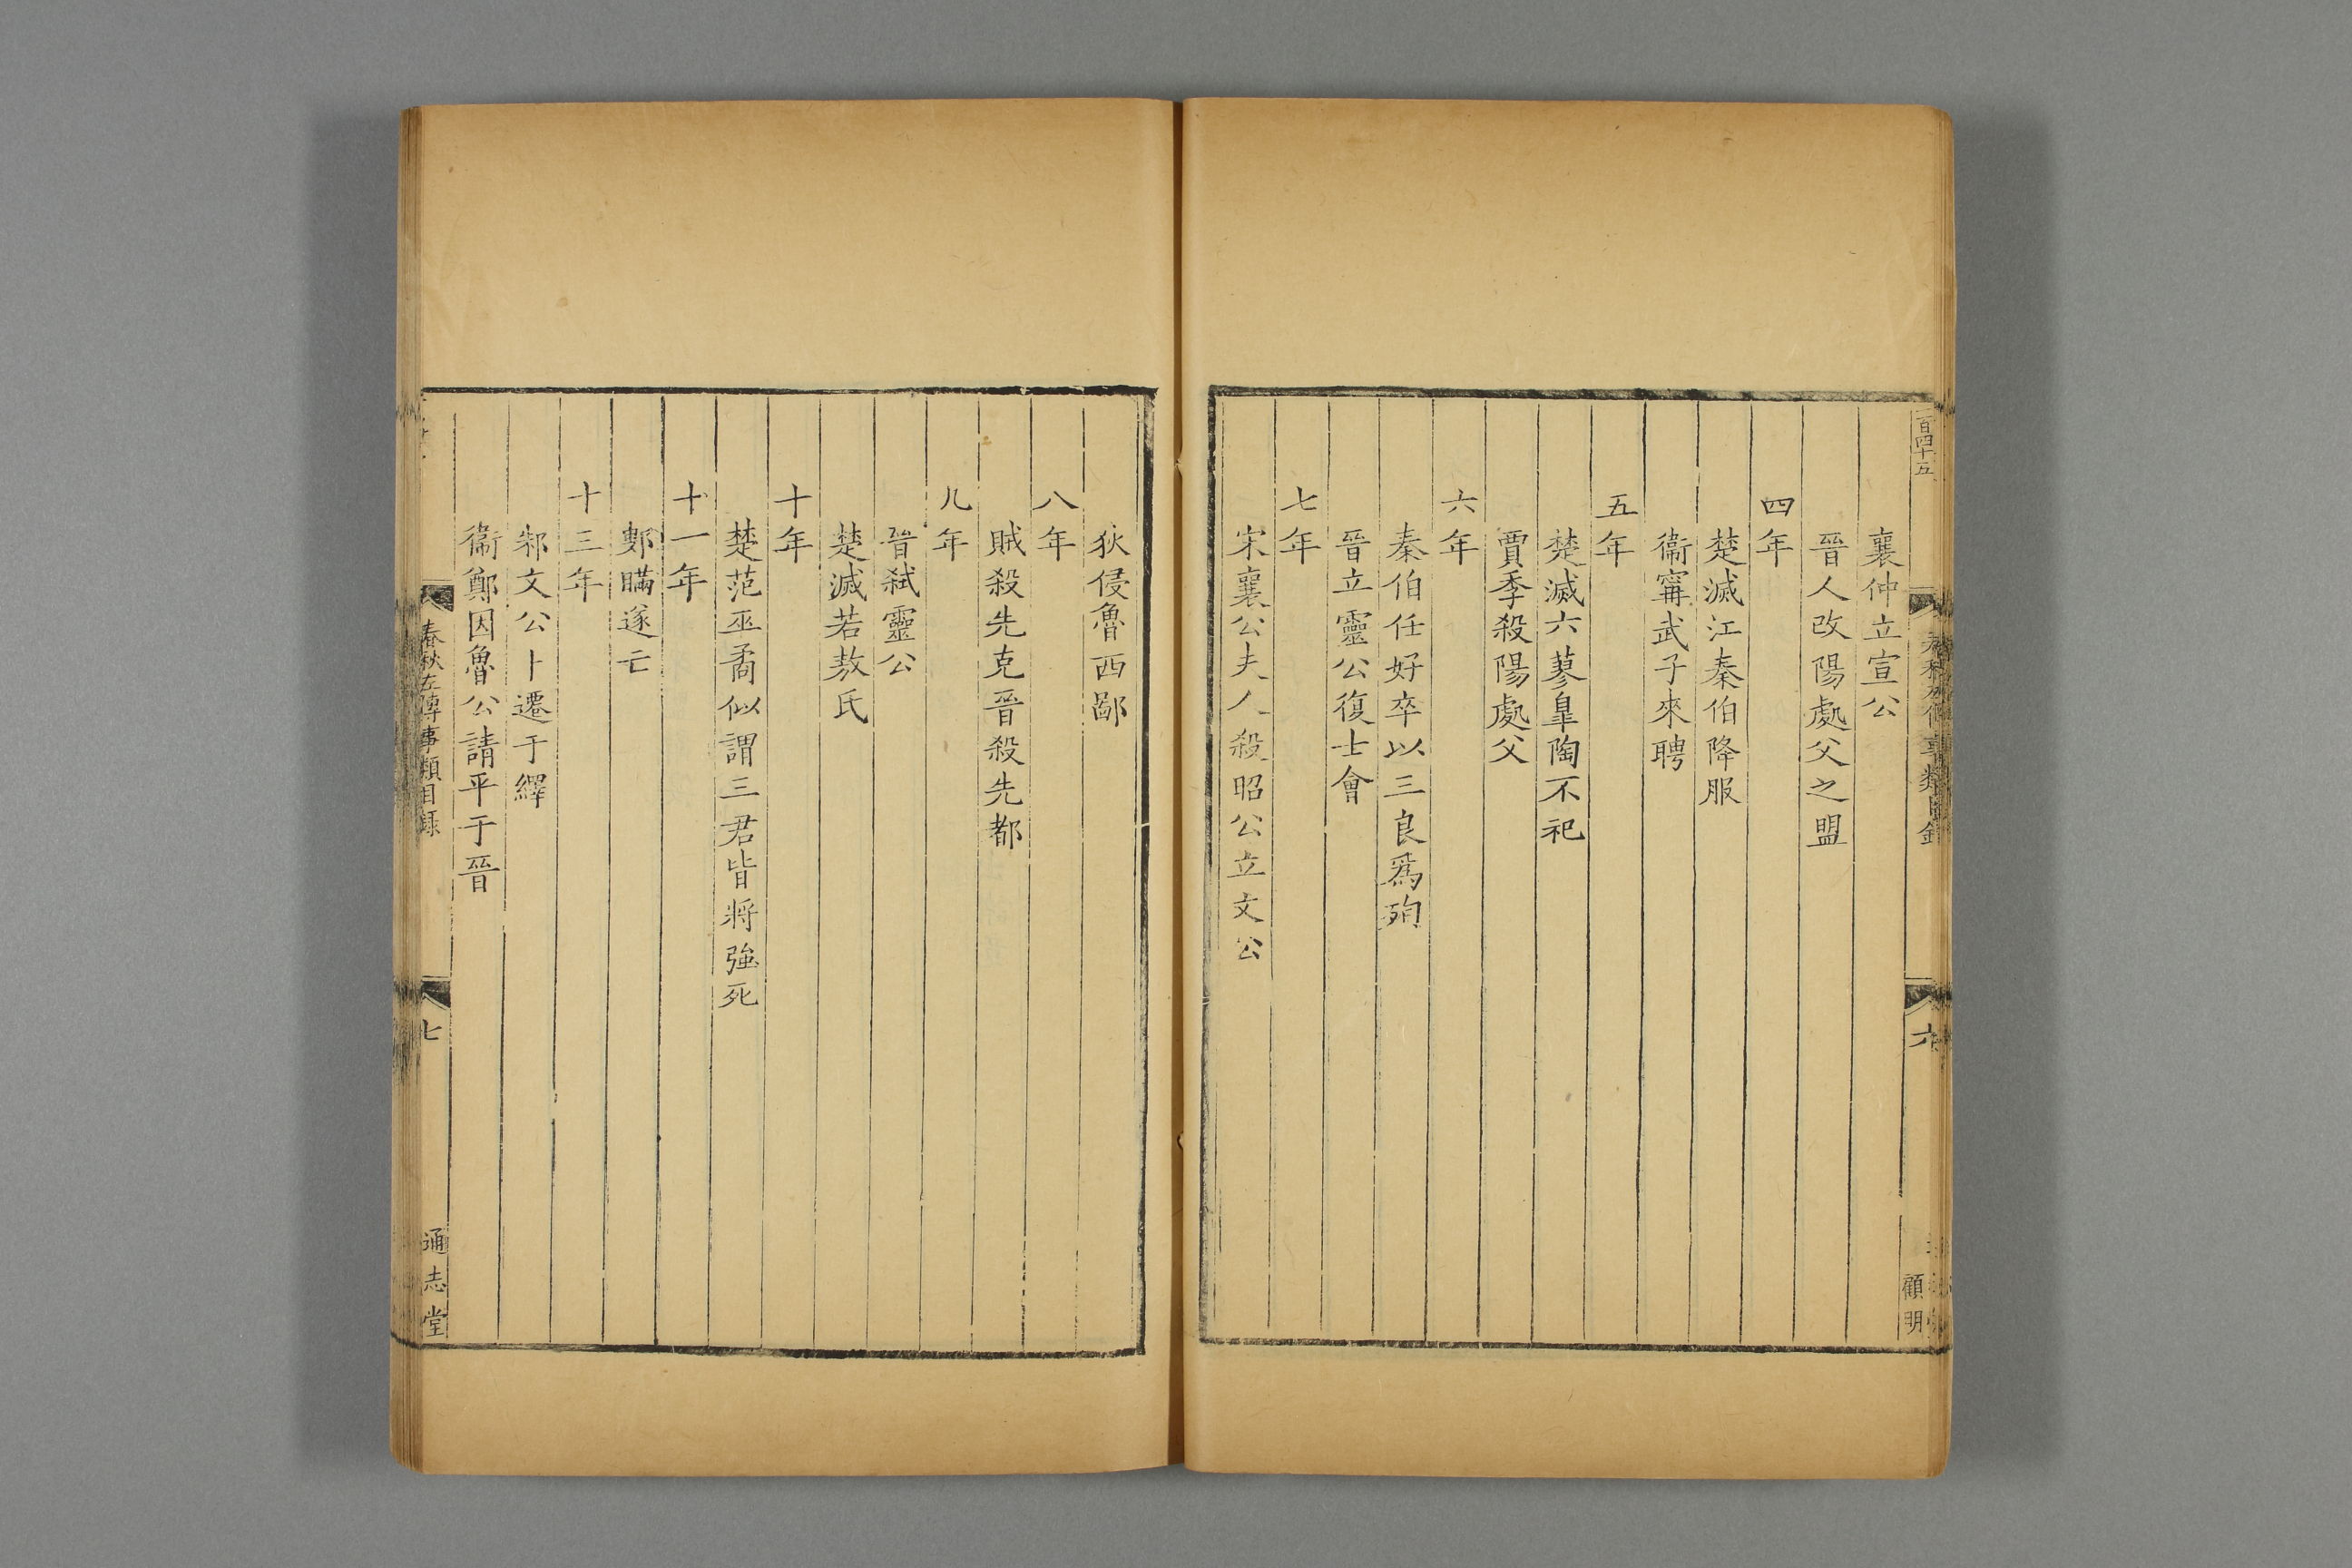 一百四十五
六
顧明
襄仲立宣公
晉人改陽處父之盟
四年
楚滅江秦伯降服
衞甯武子來聘
五年
楚滅六蓼皐陶不祀
賈季殺陽處父
六年
秦伯任好卒以三良爲殉
晉立靈公復士會
七年
宋襄公夫人殺昭公立文公
狄侵魯西鄙
八年
賊殺先克晉殺先都
九年
晉弑靈公
楚滅若敖氏
十年
楚范巫矞似謂三君皆將強死
十一年
鄋瞞遂亡
十三年
邾文公卜遷于繹
衞鄭因魯公請平于晉
春秋左傳事類目錄
七
通志堂